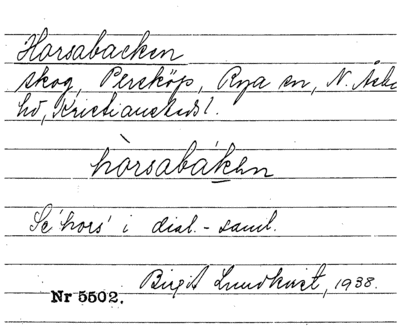 Horsabacken
skog, Perstöp, Rya sn, N. Åsbo
hd, Kristianstads l.
hòrsabáken
Se 'hors' i dial.-saml.
Birgit Lundkvist, 1938.
Nr 5502.